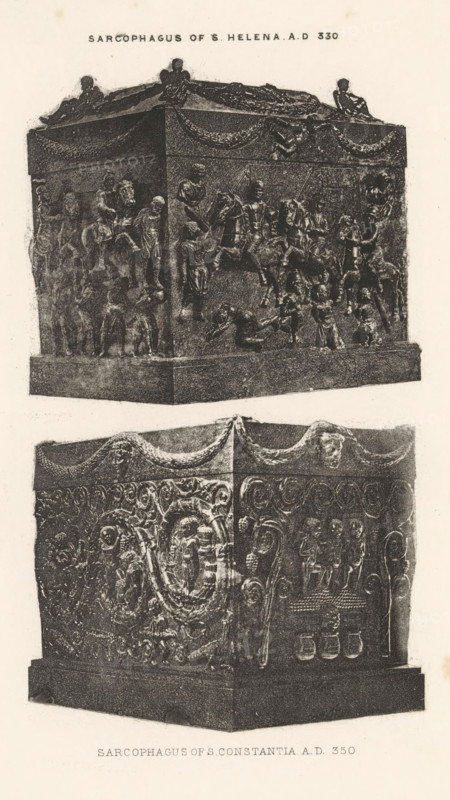 SARCOPHAGUS OF S. HELENA. A.D 330
SARCOPHAGUS OF S. CONSTANTIA A.D. 350